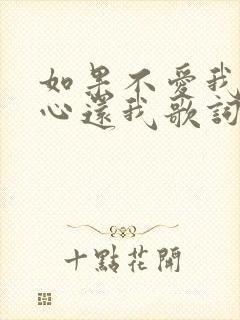 如果不愛我
心還我歌詞
十點花開